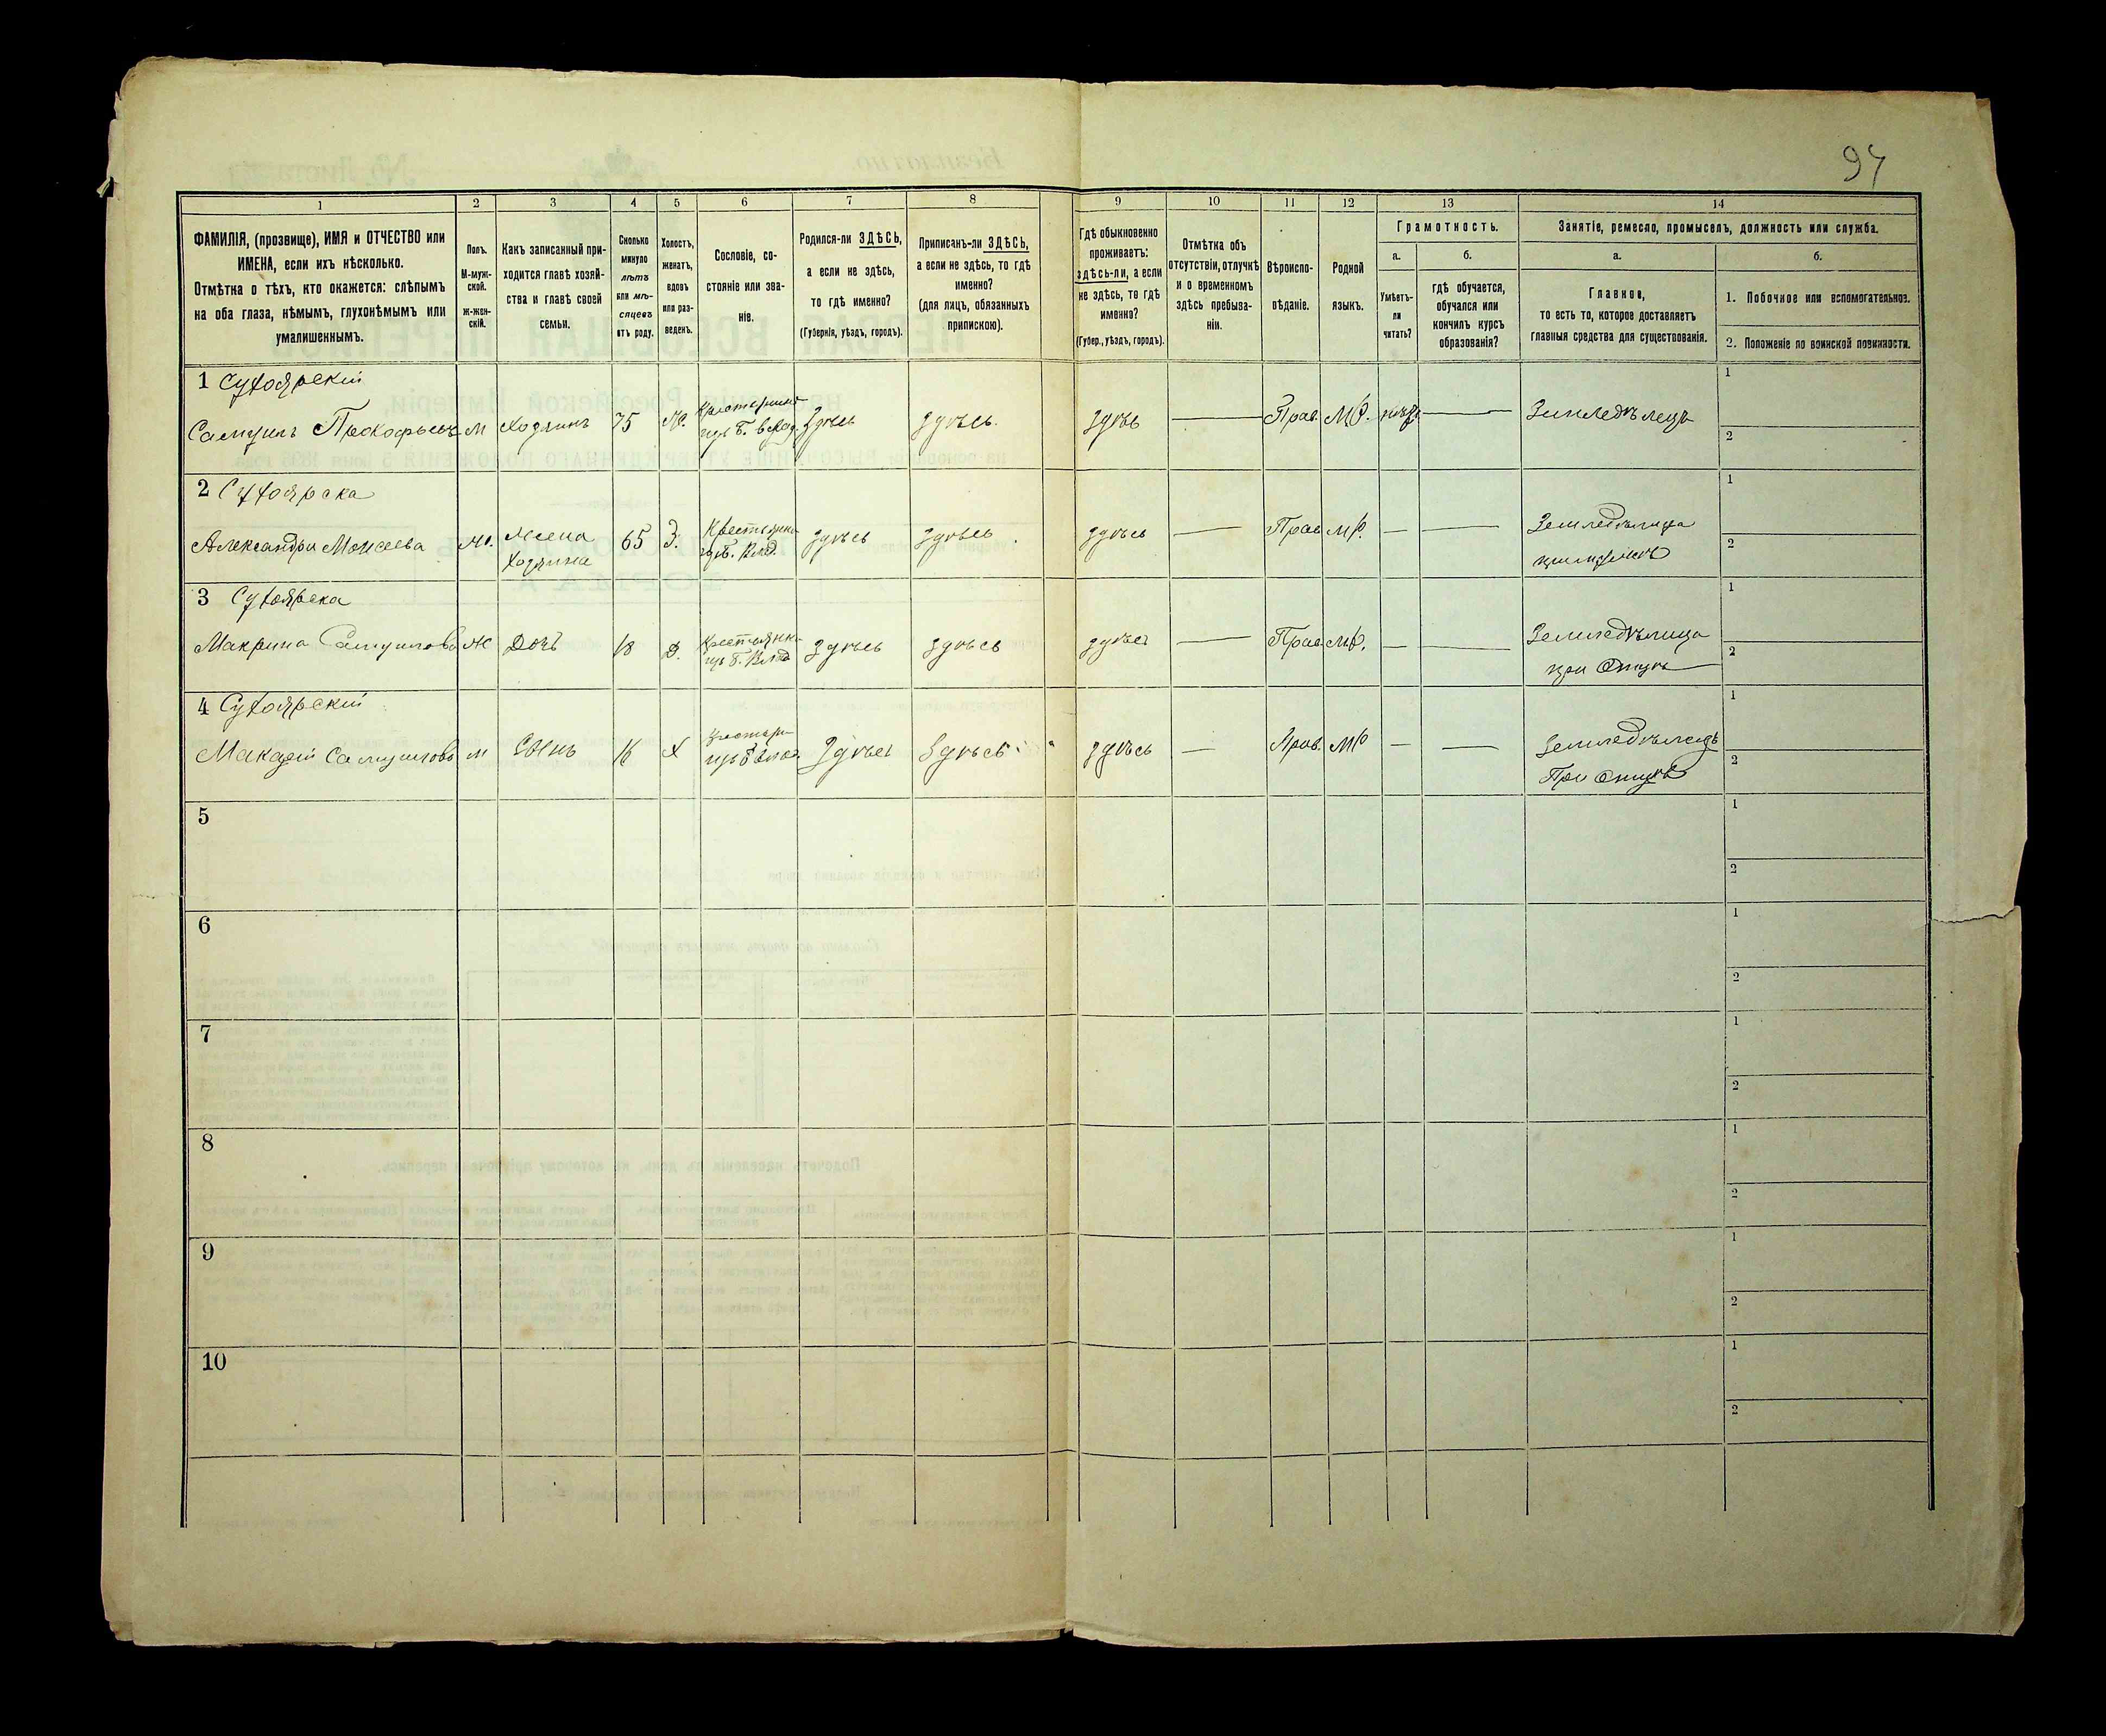 94
1
2
3
4
5
6
7
8
9
10
11
12
13
14
ФАМИЛІЯ, (прозвище), ИМЯ и ОТЧЕСТВО или
ИМЕНА, если ихъ нѣсколько.
Отмѣтка о тѣхъ, кто окажется: слѣпымъ
на оба глаза, нѣмымъ, глухонѣмымъ или
умалишеннымъ.
Полъ.
М-муж-
ской.
Ж-жен-
скій.
Какъ записанный при-
ходится главѣ хозяй-
ства и главѣ своей
семьи.
Сколько
минуло
лѣтъ
или мѣ-
сяцевъ
отъ роду.
Холостъ,
женатъ,
вдовъ
или раз-
веденъ.
Сословіе, со-
стояніе или зва-
ніе.
Родился-ли ЗДѢСЬ,
а если не здѣсь,
то гдѣ именно?
(Губернія, уѣздъ, городъ).
Приписанъ-ли ЗДѢСЬ,
а если не здѣсь, то гдѣ
именно?
(для лицъ, обязанныхъ
припискою).
Гдѣ обыкновенно
проживаетъ:
здѣсь-ли, а если
не здѣсь, то гдѣ
именно?
(Губер., уѣздъ, городъ).
Отмѣтка объ
отсутствіи, отлучкѣ
и о временномъ
здѣсь пребыва-
ніи.
Вѣроиспо-
вѣданіе.
Родной
языкъ.
Грамотность.
а.
Умѣетъ-
ли
читать?
б.
гдѣ обучается,
обучался или
кончилъ курсъ
образованія?
Занятіе, ремесло, промыселъ, должность или служба.
а.
Главное,
то есть то, которое доставляетъ
главныя средства для существованія.
б.
1. Побочное или вспомогательное.
2. Положеніе по воинской повинности.
1 Сутоярскій
Самуилъ Прокофьевъ М Хозяинъ 75 Ж. здѣсь здѣсь. здѣсь — Прав. МР. — Земледѣлецъ
1
2
2 Сутоярска
Александра Моисеева Ж. Жена
Хозяина
65 З. Крестьянка
изъ б. Влад.
здѣсь здѣсь здѣсь — Прав МР. — — Земледѣлица
1
2
3 Сутоярска
Макрина Самуилова Ж Дочь 18 Д. Крестьянка
изъ б. Влад
здѣсь здѣсь здѣсь — Прав. МР. — — Земледѣлица
при Отцѣ
1
2
4 Сутоярскій
Самуилова М Сынъ 16 Х
изъ б. влад.
здѣсь здѣсь здѣсь — Прав. МР — — Земледѣлецъ
При Отцѣ
1
2
5
1
2
6
1
2
7
1
2
8
1
2
9
1
2
10
1
2